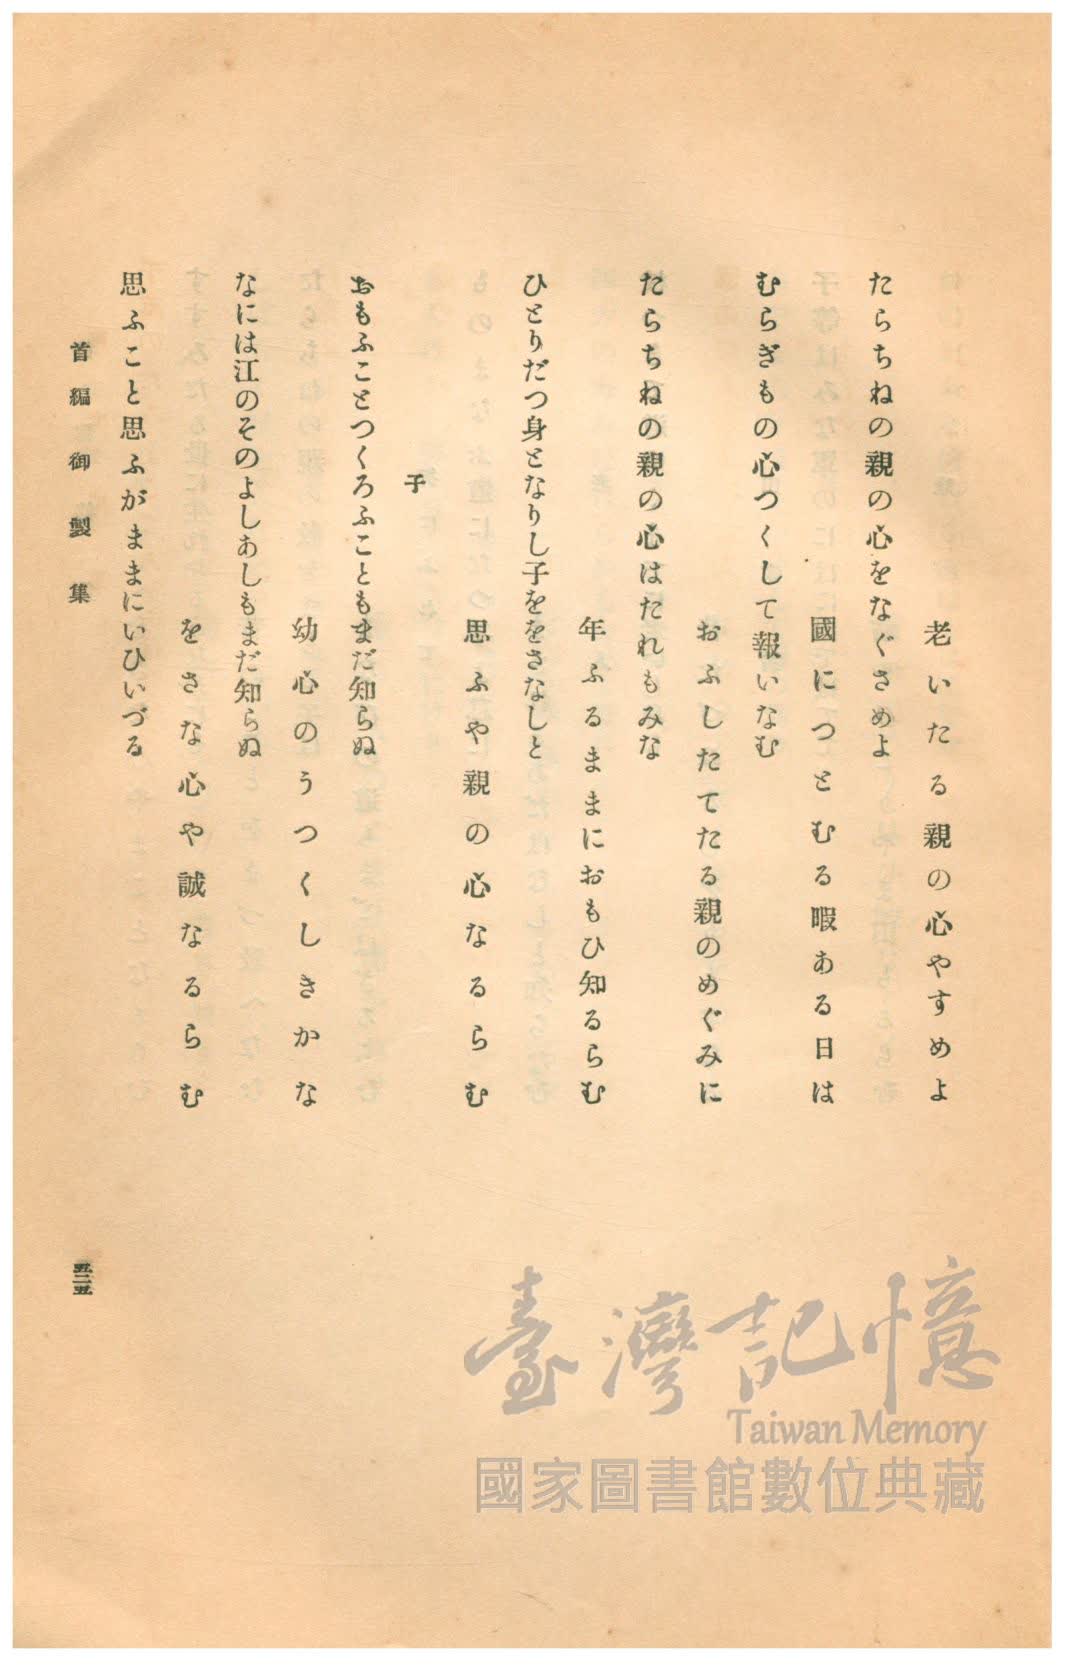 老いたる親の心やすめよ
たらちねの親の心をなぐさめよ
國につとむる暇ある日は
むらぎもの心つくして報いなむ
おふしたてたる親のめぐみに
たらちねの親の心はたれもみな
年ふるままにおもひ知るらむ
ひとりだつ身となりし子ををさなしと
思ふや親の心なるらむ
子
おもふことつくろふこともまだ知らぬ
幼心のうつくしきかな
なには江のそのよしあしもまだ知らぬ
をさな心や誠なるらむ
思ふこと思ふがままにいひいづる
首編御製集
五二五
臺灣記憶
Taiwan Memory
國家圖書館數位典藏